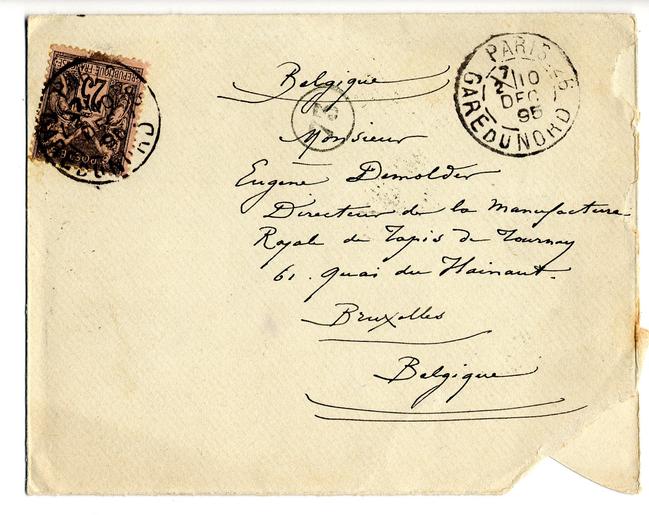 Belgique
PARIS-26
7
10
DEC
95
GARE DU NORD
RÉPUBLIQUE FRANÇAISE
25
Monsieur
Eugene Demolder
Directeur de la Manufacture
Royale de Tapis de Tournay
61. Quai du Hainaut.
Bruxelles
Belgique